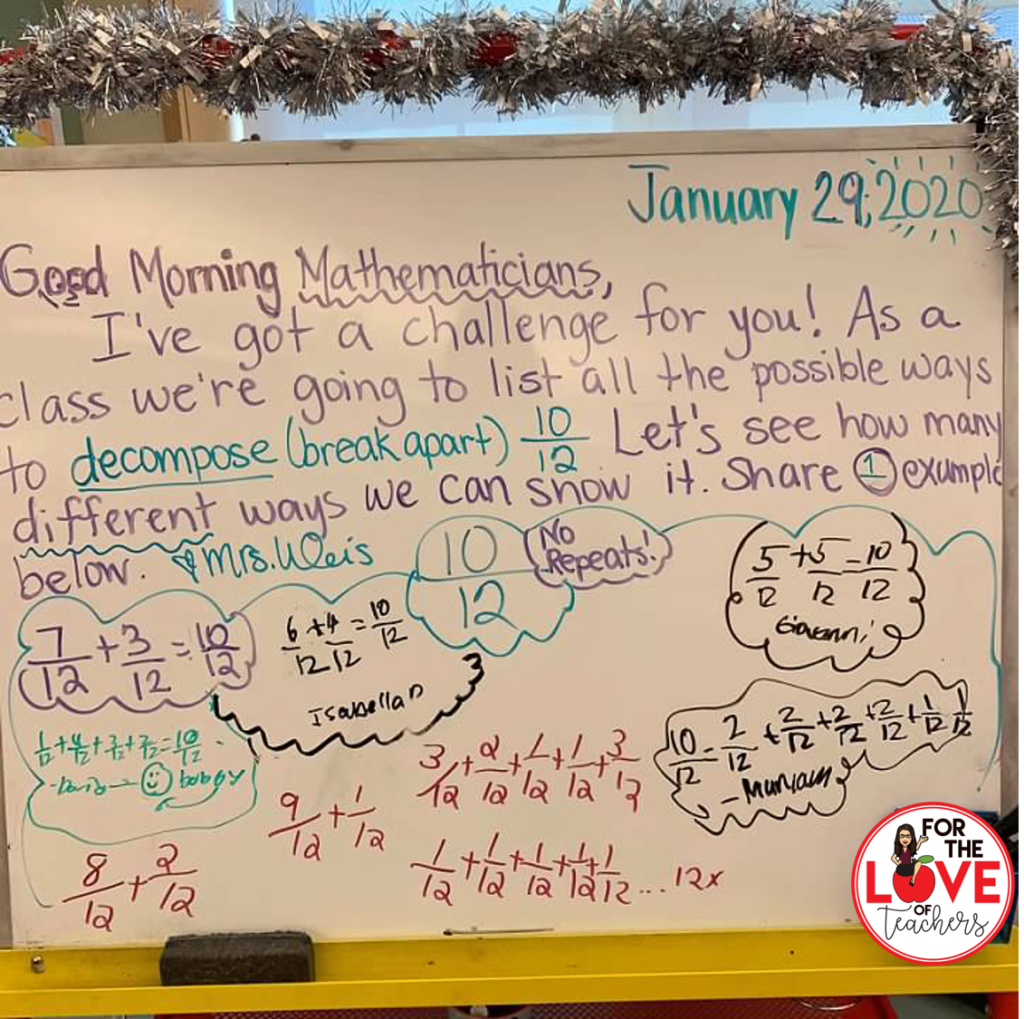 January 29, 2020
Good Morning Mathematicians,
I've got a challenge for you! As a
class we're going to list all the possible ways
to decompose (break apart) 10/12. Let's see how many
different ways we can show it. Share 1 example
below. Mrs. Weis
10/12
No
Repeats!
5/12 + 5/12 = 10/12
Giovanni
7/12 + 3/12 = 10/12
6/12 + 4/12 = 10/12
Isabella D
10/12 = 2/12 + 2/12 + 2/12 + 2/12 + 1/12 1/12
- Mariam
bobby
3/12 + 2/12 + 1/12 + 1/12 + 3/12
9/12 + 1/12
8/12 + 2/12
1/12 + 1/12 + 1/12 + 1/12 + 1/12 ... 12x
FOR
THE
LOVE
OF
Teachers